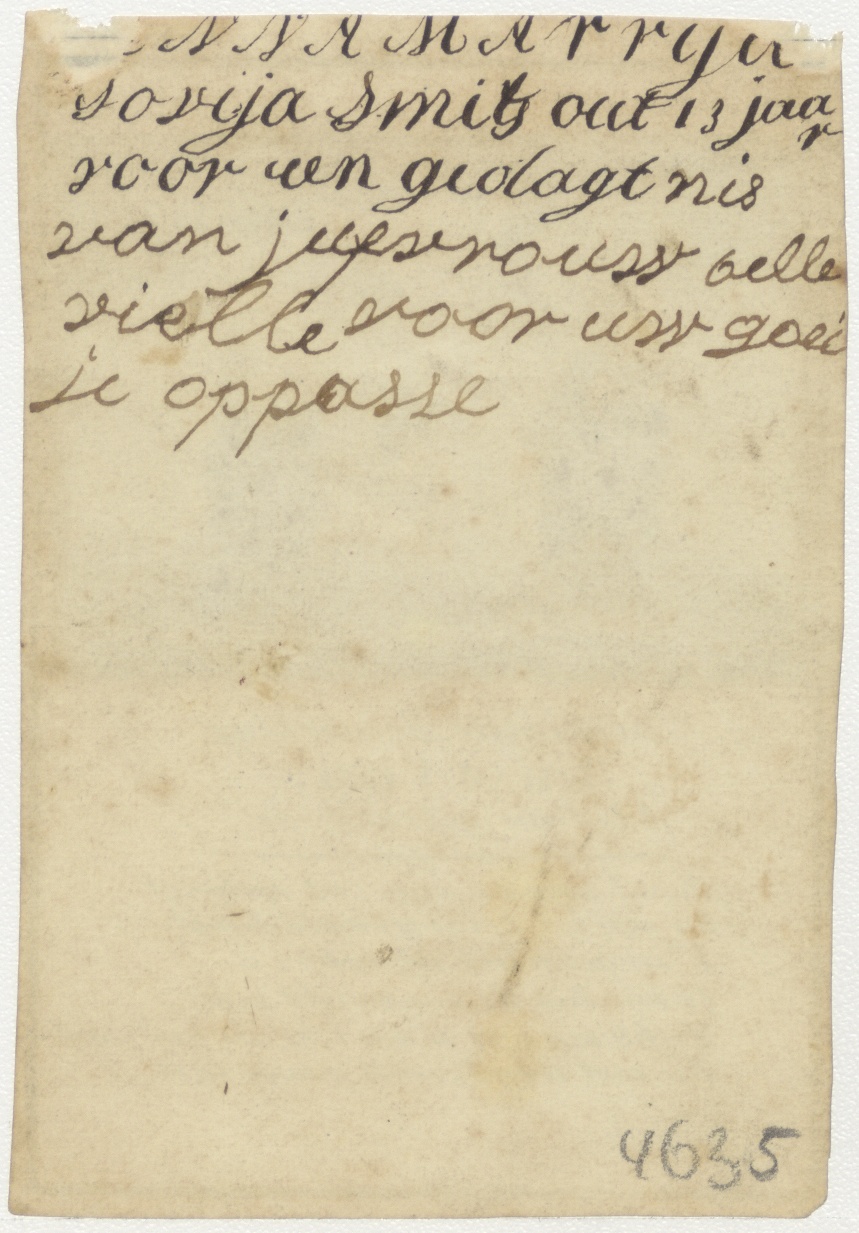 ANNA MArrya
sovija Smits out 13 jaar
voor uen gedagt nis
van jufvrouw delle
vielle voor uw goei
je oppasse
4635